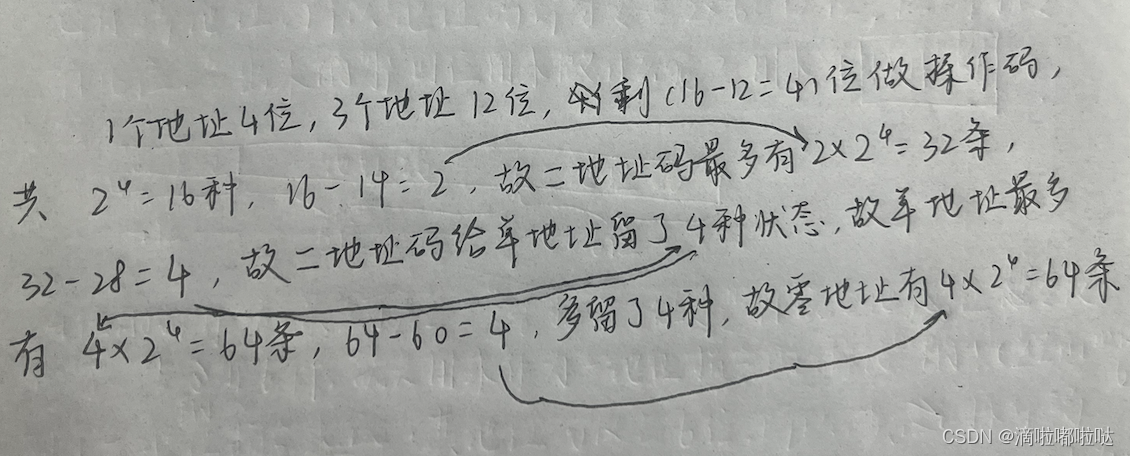 1个地址4位,3个地址12位,剩(16-12=4)位做操作码,
共 2⁴=16种, 16-14=2, 故二地址码最多有2×2⁴=32条,
32-28=4, 故二地址码给单地址留了4种状态,故单地址最多
有 4×2⁴=64条, 64-60=4, 多留了4种,故零地址有4×2⁴=64条
CSDN @滴啦嘟啦哒